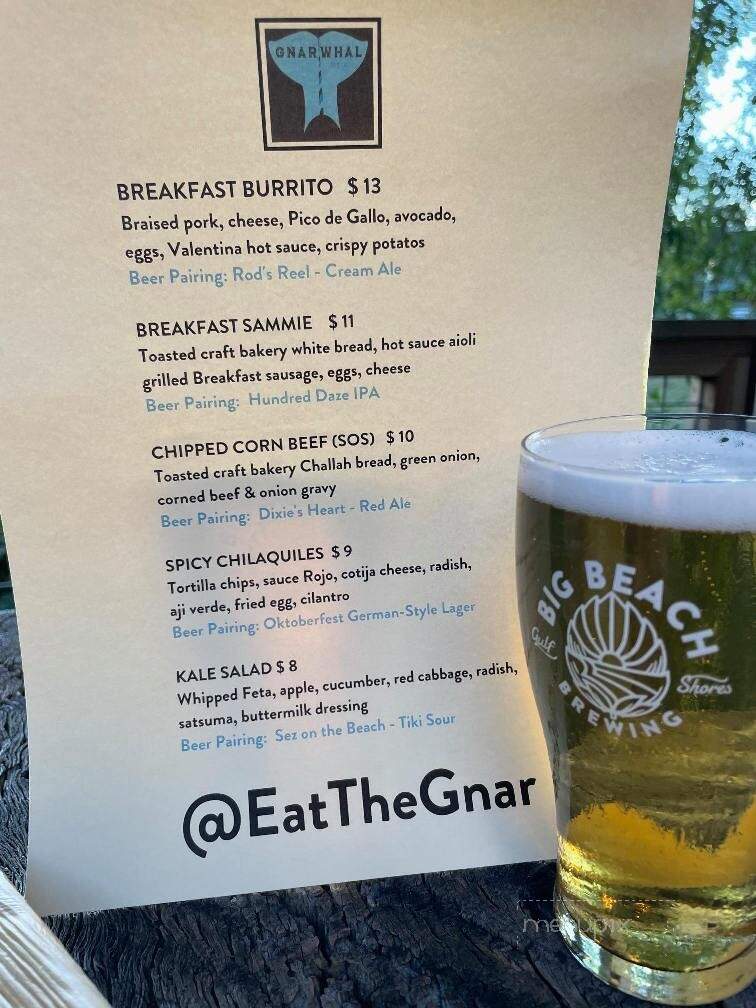 GNARWHAL
BREAKFAST BURRITO $13
Braised pork, cheese, Pico de Gallo, avocado,
eggs, Valentina hot sauce, crispy potatos
Beer Pairing: Rod's Reel - Cream Ale
BREAKFAST SAMMIE $11
Toasted craft bakery white bread, hot sauce aioli
grilled Breakfast sausage, eggs, cheese
Beer Pairing: Hundred Daze IPA
CHIPPED CORN BEEF (SOS) $10
Toasted craft bakery Challah bread, green onion,
corned beef & onion gravy
Beer Pairing: Dixie's Heart - Red Ale
SPICY CHILAQUILES $9
Tortilla chips, sauce Rojo, cotija cheese, radish,
aji verde, fried egg, cilantro
Beer Pairing: Oktoberfest German-Style Lager
KALE SALAD $8
Whipped Feta, apple, cucumber, red cabbage, radish,
satsuma, buttermilk dressing
Beer Pairing: Sez on the Beach - Tiki Sour
@EatTheGnar
BIG BEACH
Gulf Shores
BREWING
menupix